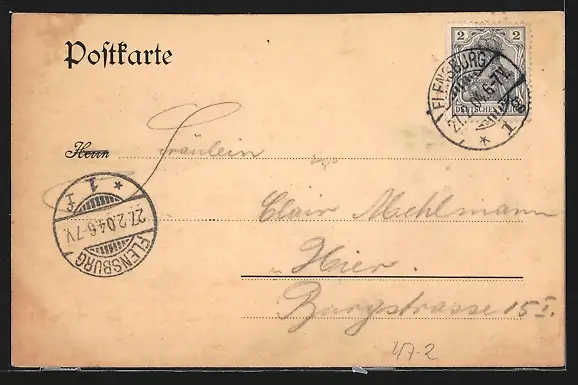 Postkarte
2 2
DEUTSCHES REICH
FLENSBURG
27.2.04.6-7V.
* 1 g
Herrn Fräulein
Clair Mehlmann
Hier.
Burgstrasse 15 I.
FLENSBURG
27.2.04.6-7V.
* 1 f
47-2